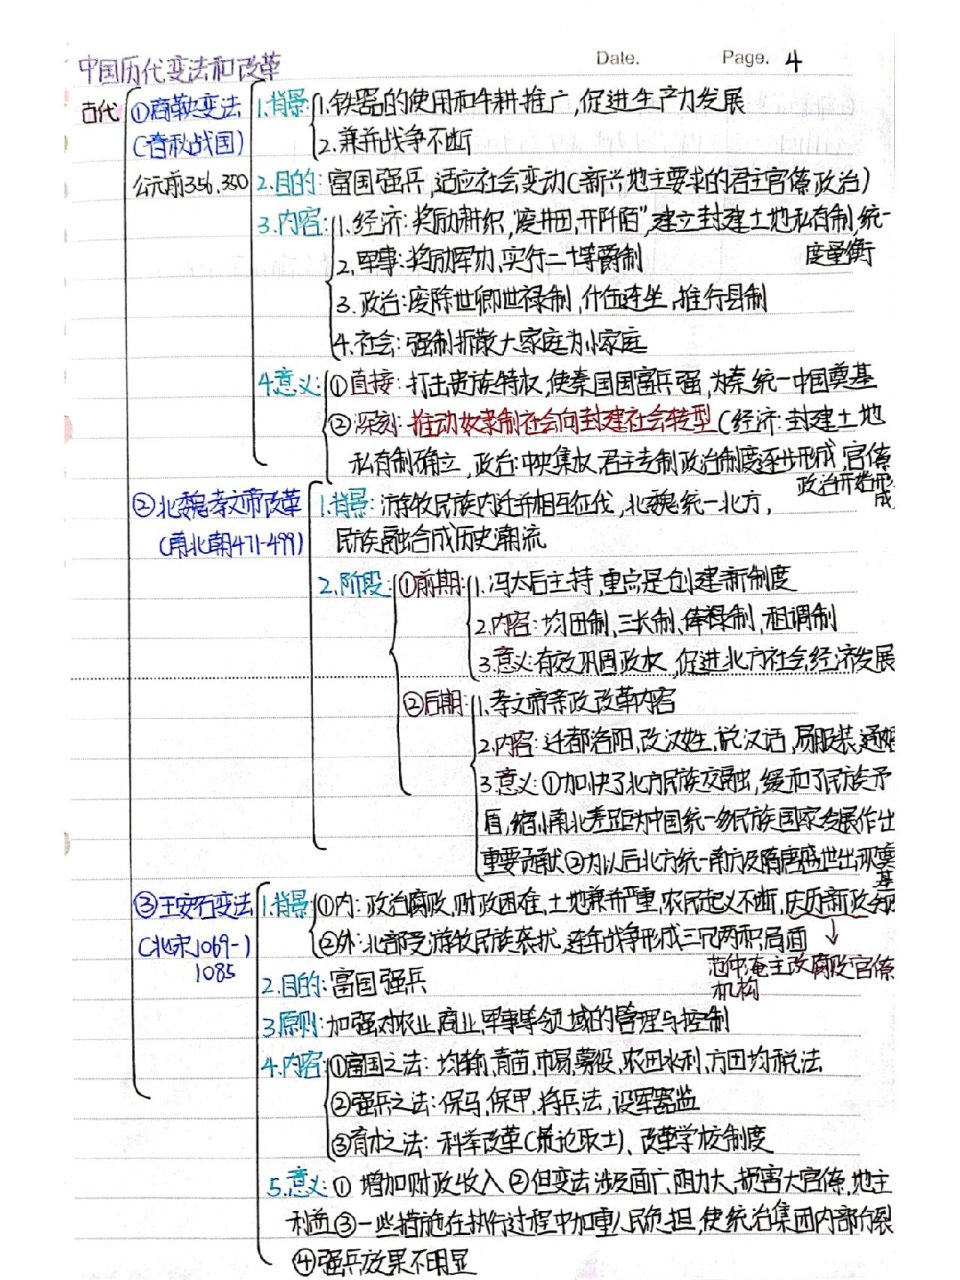 Date. Page. 4
中国历代变法和改革
古代 ①商鞅变法
(春秋战国)
公元前356,350
1.背景 1.铁器的使用和牛耕推广,促进生产力发展
2.兼并战争不断
2.目的:富国强兵,适应社会变动(新兴地主要求的君主官僚政治)
3.内容: 1.经济:奖励耕织,"废井田,开阡陌",建立封建土地私有制,统一
度量衡
2.军事:奖励军功,实行二十等爵制
3.政治:废除世卿世禄制,什伍连坐,推行县制
4.社会:强制拆散大家庭为小家庭
4.意义: ①直接:打击贵族特权,使秦国国富兵强,为秦统一中国奠基
②深刻:推动奴隶制社会向封建社会转型(经济:封建土地
私有制确立,政治:中央集权,君主专制政治制度逐步形成,官僚
政治开始形
成
②北魏孝文帝改革
(南北朝471-499)
1.背景:游牧民族内迁并相互征伐,北魏统一北方,
民族融合成历史潮流
2.阶段: ①前期: 1.冯太后主持,重点是创建新制度
2.内容:均田制、三长制、俸禄制,租调制
3.意义:有效巩固政权,促进北方社会经济发展
②后期: 1.孝文帝亲政改革内容
2.内容:迁都洛阳,改汉姓,说汉话,易服装,通婚
3.意义:①加快了北方民族交融,缓和了民族矛
盾,缩小南北差距为中国统一多民族国家发展作出
重要贡献②为以后北方统一南方及隋唐盛世出现奠
基
③王安石变法
(北宋1069-
1085)
1.背景 ①内:政治腐败,财政困难,土地兼并严重,农民起义不断,庆历新政
②外:北部受游牧民族袭扰,连年战争形成三冗两积局面
范仲淹主改腐败官僚
机构
2.目的:富国强兵
3.原则:加强对农业,商业,军事等领域的管理与控制
4.内容: ①富国之法:均输,青苗,市易,募役,农田水利,方田均税法
②强兵之法:保马,保甲,将兵法,设军器监
③育才之法:科举改革(策论取士)、改革学校制度
5.意义:①增加财政收入②但变法涉及面广,阻力大,损害大官僚,地主
利益③一些措施在执行过程中加重人民负担,使统治集团内部分裂
④强兵效果不明显